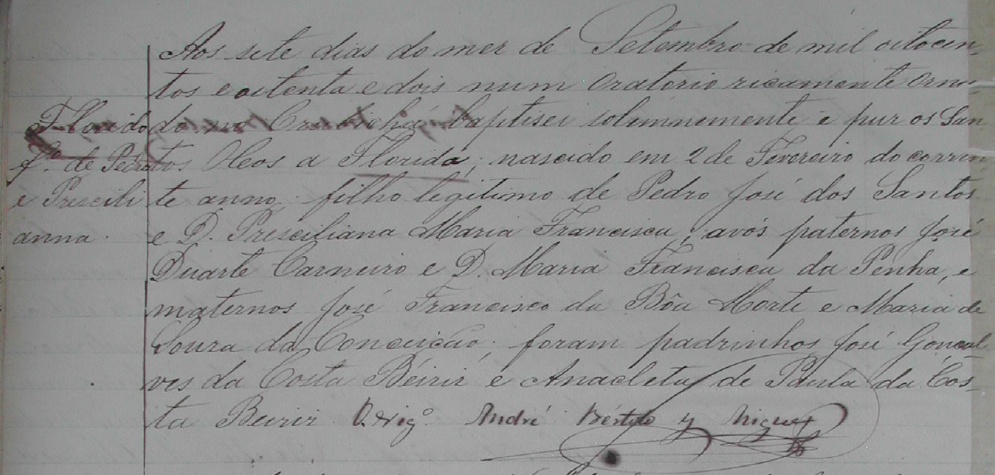 Aos sete dias do mez de Setembro de mil oitocen,
tos e oitenta e dois num oratorio ricamente orna
Florido do na baptisei solemnemente e puz os San
fº. de Pedro tos Oleos a Florido, nascido em 2 de Fevereiro do corren
e Prescili te anno, filho legitimo de Pedro José dos Santos
anna. e D. Presciliana Maria Francisca, avós paternos José
Duarte Carneiro e D. Maria Francisca da Penha, e
maternos José Francisco da Bôa Morte e Maria de
Loura da Conceicão. foram padrinhos José Goncal
ves da Costa Béiriz e Anacleta de Paula da Cos
ta Beiriz O. Vigº. André